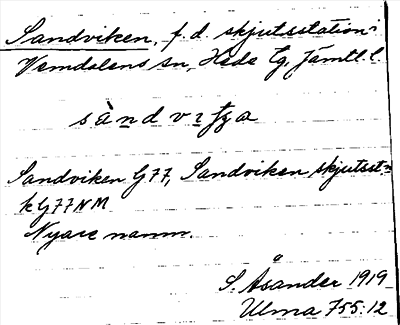 Sandviken, f. d. skjutsstation i
Vemdalens sn, Hede tg, Jämtl. l.
sàndvıʈʂa
Sandviken G77, Sandviken skjutsstn
k G77NM
Nyare namn.
S. Åsander 1919
Ulma 755:12